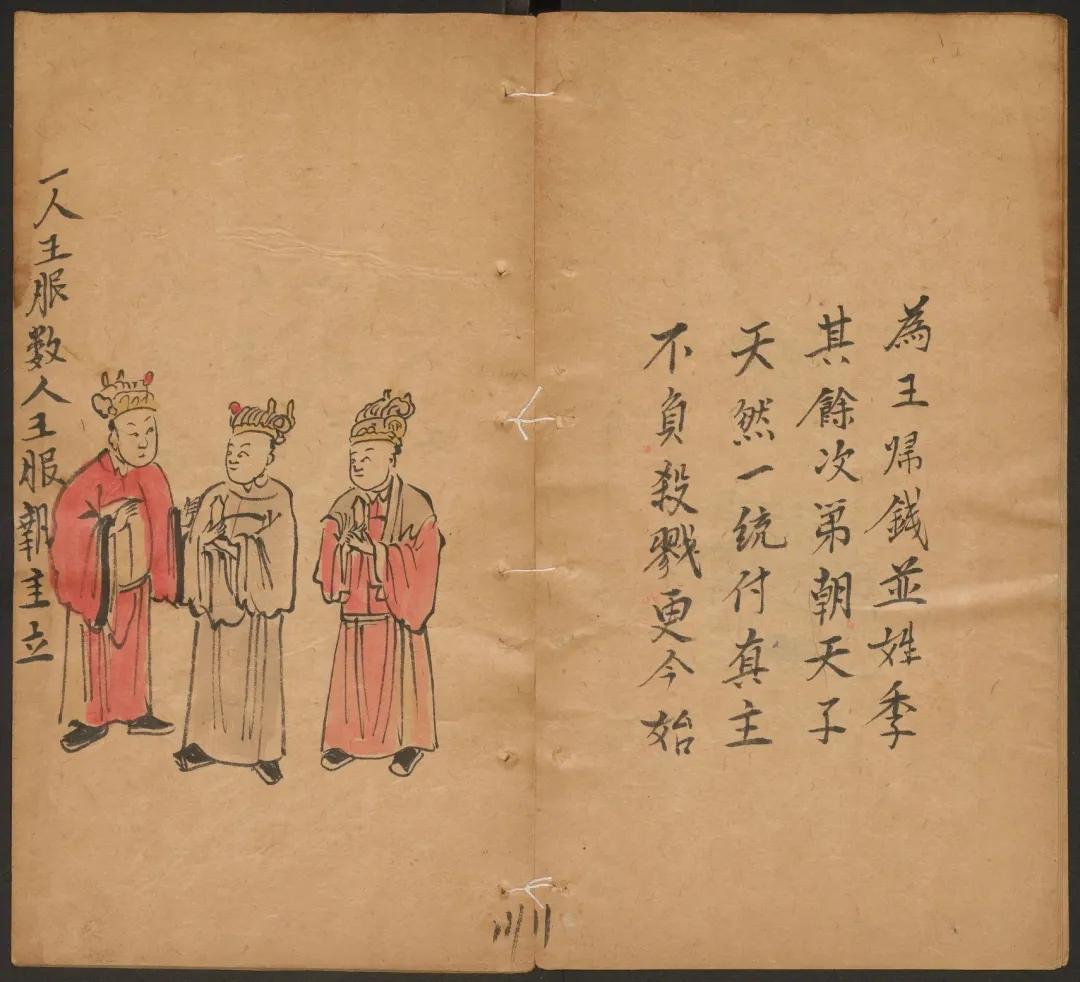 為王歸錢並姓季
其餘次第朝天子
天然一统付真主
不負殺戮更今始
一人王服数人王服朝主立